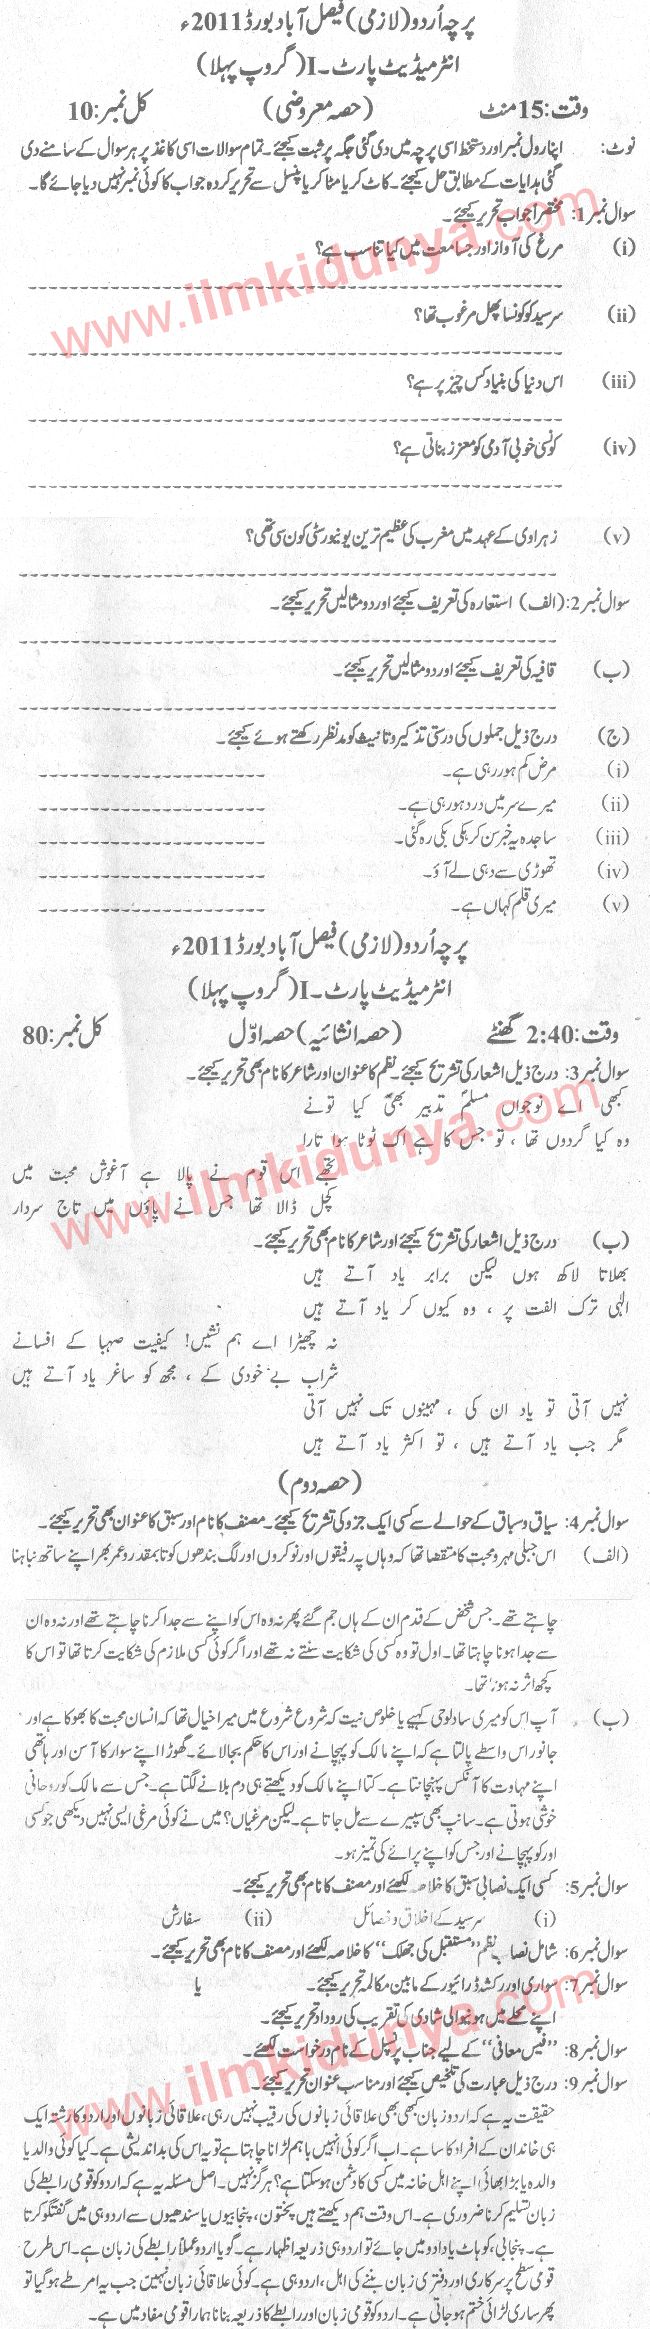 پرچہ اُردو (لازمی) فیصل آباد بورڈ 2011ء
انٹرمیڈیٹ پارٹ۔I (گروپ پہلا)
وقت: 15 منٹ (حصہ معروضی) کل نمبر: 10
نوٹ: اپنا رول نمبر اور دستخط اسی پرچہ میں دی گئی جگہ پر ثبت کیجئے۔ تمام سوالات اسی کاغذ پر ہر سوال کے سامنے دی
گئی ہدایات کے مطابق حل کیجئے۔ کاٹ کر یا مٹا کر یا پنسل سے تحریر کردہ جواب کا کوئی نمبر نہیں دیا جائے گا۔
سوال نمبر 1: مختصراً جواب تحریر کیجئے۔
(i) مرغ کی آواز اور جسامت میں کیا تناسب ہے؟
(ii) سرسید کو کونسا پھل مرغوب تھا؟
(iii) اس دنیا کی بنیاد کس چیز پر ہے؟
(iv) کونسی خوبی آدمی کو معزز بناتی ہے؟
(v) زہراوی کے عہد میں مغرب کی عظیم ترین یونیورسٹی کون سی تھی؟
سوال نمبر 2: (الف) استعارہ کی تعریف کیجئے اور دو مثالیں تحریر کیجئے۔
(ب) قافیہ کی تعریف کیجئے اور دو مثالیں تحریر کیجئے۔
(ج) درج ذیل جملوں کی درستی تذکیر و تانیث کو مدنظر رکھتے ہوئے کیجئے۔
(i) مرض کم ہو رہی ہے۔
(ii) میرے سر میں درد ہو رہی ہے۔
(iii) ساجدہ یہ خبر سن کر ہکی بکی رہ گئی۔
(iv) تھوڑی سے دہی لے آؤ۔
(v) میری قلم کہاں ہے۔
پرچہ اُردو (لازمی) فیصل آباد بورڈ 2011ء
انٹرمیڈیٹ پارٹ۔I (گروپ پہلا)
وقت: 2:40 گھنٹے (حصہ انشائیہ) حصہ اوّل کل نمبر: 80
سوال نمبر 3: درج ذیل اشعار کی تشریح کیجئے۔ نظم کا عنوان اور شاعر کا نام بھی تحریر کیجئے۔
کبھی اے نوجواں مسلم تدبیر بھی کیا تو نے
وہ کیا گردوں تھا، تو جس کا ہے اک ٹوٹا ہوا تارا
تجھے اس قوم نے پالا ہے آغوش محبت میں
کچل ڈالا تھا جس نے پاؤں میں تاج سردار
(ب) درج ذیل اشعار کی تشریح کیجئے اور شاعر کا نام بھی تحریر کیجئے۔
بھلاتا لاکھ ہوں لیکن برابر یاد آتے ہیں
الٰہی ترک الفت پر، وہ کیوں کر یاد آتے ہیں
نہ چھیڑا اے ہم نشیں! کیفیت صہبا کے افسانے
شراب بے خودی کے، مجھ کو ساغر یاد آتے ہیں
نہیں آتی تو یاد ان کی، مہینوں تک نہیں آتی
مگر جب یاد آتے ہیں، تو اکثر یاد آتے ہیں
(حصہ دوم)
سوال نمبر 4: سیاق و سباق کے حوالے سے کسی ایک جزو کی تشریح کیجئے۔ مصنف کا نام اور سبق کا عنوان بھی تحریر کیجئے۔
(الف) اس جبلی مہر و محبت کا مقتضا تھا کہ وہاں پہ رفیقوں اور نوکروں اور لگ بندھوں کو تا بمقدور عمر بھر اپنے ساتھ نباہنا
چاہتے تھے۔ جس شخص کے قدم ان کے ہاں جم گئے پھر نہ وہ اس کو اپنے سے جدا کرنا چاہتے تھے اور نہ وہ ان
سے جدا ہونا چاہتا تھا۔ اول تو وہ کسی کی شکایت سنتے نہ تھے اور اگر کوئی کسی ملازم کی شکایت کرتا تھا تو اس کا
کچھ اثر نہ ہوتا تھا۔
(ب) آپ اس کو میری سادلوحی کہیے یا خلوص نیت کہ شروع شروع میں میرا خیال تھا کہ انسان محبت کا بھوکا ہے اور
جانور اس واسطے پالتا ہے کہ اپنے مالک کو پہچانے اور اس کا حکم بجا لائے۔ گھوڑا اپنے سوار کا آسن اور ہاتھی
اپنے مہاوت کا آنکس پہنچانتا ہے۔ کتا اپنے مالک کو دیکھتے ہی دم ہلانے لگتا ہے۔ جس سے مالک کو روحانی
خوشی ہوتی ہے۔ سانپ بھی سپیرے سے مل جاتا ہے۔ لیکن مرغیاں؟ میں نے کوئی مرغی ایسی نہیں دیکھی جو کسی
اور کو پہچانے اور جس کو اپنے پرائے کی تمیز ہو۔
سوال نمبر 5: کسی ایک نصابی سبق کا خلاصہ لکھئے اور مصنف کا نام بھی تحریر کیجئے۔
(i) سرسید کے اخلاق و خصائل (ii) سفارش
سوال نمبر 6: شامل نصاب نظم "مستقبل کی جھلک" کا خلاصہ لکھئے اور مصنف کا نام بھی تحریر کیجئے۔
سوال نمبر 7: سواری اور رکشہ ڈرائیور کے مابین مکالمہ تحریر کیجئے۔ یا
اپنے محلے میں ہونیوالی شادی کی تقریب کی روداد تحریر کیجئے۔
سوال نمبر 8: "فیس معافی" کے لیے جناب پرنسپل کے نام درخواست لکھئے۔
سوال نمبر 9: درج ذیل عبارت کی تلخیص کیجئے اور مناسب عنوان تحریر کیجئے۔
حقیقت یہ ہے کہ اردو زبان کبھی بھی علاقائی زبانوں کی رقیب نہیں رہی، علاقائی زبانوں اور اردو کا رشتہ ایک
ہی خاندان کے افراد کا سا ہے۔ اب اگر کوئی انہیں باہم لڑانا چاہتا ہے تو یہ اس کی بداندیشی ہے۔ کیا کوئی والد یا
والدہ یا بڑا بھائی اپنے اہل خانہ میں کسی کا دشمن ہو سکتا ہے؟ ہرگز نہیں۔ اصل مسئلہ یہ ہے کہ اردو کو قومی رابطے کی
زبان تسلیم کرنا ضروری ہے۔ اس وقت ہم دیکھتے ہیں پختون، پنجابیوں یا سندھیوں سے اردو ہی میں گفتگو کرتا
ہے۔ پنجابی، کوہاٹ یا دادو میں جائے تو اردو ہی ذریعہ اظہار ہے۔ گویا اردو عملاً رابطے کی زبان ہے۔ اس طرح
قومی سطح پر سرکاری اور دفتری زبان بننے کی اہل، اردو ہی ہے۔ کوئی علاقائی زبان نہیں جب یہ امر طے ہو گیا تو
پھر ساری لڑائی ختم ہو جاتی ہے۔ اردو کو قومی زبان اور رابطے کا ذریعہ بنانا ہمارا قومی مفاد میں ہے۔
www.ilmkidunya.com
www.ilmkidunya.com
www.ilmkidunya.com